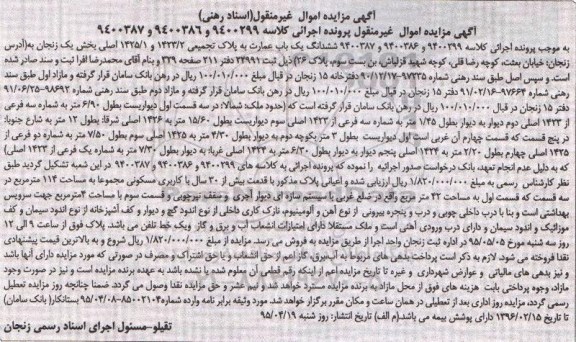 آگهی مزایده اموال غیرمنقول(اسناد رهنی)
آگهی مزایده اموال غیرمنقول پرونده اجرائی کلاسه ۹۴۰۰۲۹۹ و ۹۴۰۰۳۸۶ و ۹۴۰۰۳۸۷
به موجب پرونده اجرائی کلاسه ۹۴۰۰۲۹۹ و ۹۴۰۰۳۸۶ و ۹۴۰۰۳۸۷ ششدانگ یک باب عمارت به پلاک تجمیعی ۱۴۲۳/۲ و ۱۴۲۵/۱ اصلی بخش یک زنجان به(آدرس
زنجان: خیابان بعثت، کوچه رضا قلی، کوچه شهید قزلباش، بن بست سوم، پلاک ۲۶) ذیل ثبت ۲۴۹۹۱ دفتر ۲۱۱ صفحه ۳۳۹ و بنام آقای محمدرضا افرا ثبت و سند صادر شده
است. و سپس اصل طبق سند رهنی شماره ۹۷۳۳۵-۹۰/۱۲/۱۷ دفترخانه ۱۵ زنجان در قبال مبلغ ۱۰۰/۰۱۰/۰۰۰ ریال در رهن بانک سامان قرار گرفته و مازاد اول طبق سند
رهنی شماره ۹۷۶۶۴-۹۱/۰۲/۱۶ دفتر ۱۵ زنجان در قبال مبلغ ۱۰۰/۰۱۰/۰۰۰ ریال در رهن بانک سامان قرار گرفته و مازاد دوم طبق سند رهنی شماره ۹۸۶۹۲-۹۱/۰۶/۲۵
دفتر ۱۵ زنجان در قبال ۱۰۰/۰۱۰/۰۰۰ ریال در رهن بانک سامان قرار گرفته است که (حدود ملک: شمالا: در سه قسمت اول دیواریست بطول ۶/۹۰ متر به شماره سه فرعی
از ۱۴۲۳ اصلی دوم دیوار به دیوار بطول ۱/۴۵ متر به شماره سه فرعی از ۱۴۲۳ اصلی سوم دیواریست بطول ۱۵/۶۰ متر به ۱۴۲۶ اصلی شرقا: بطول ۱۲ متر به شارع جنوبا:
در پنج قسمت که قسمت چهارم آن غربی است اول دیواریست بطول ۳ متر بکوچه دوم به دیوار بطول ۴/۳۰ متر به ۱۴۲۵ اصلی سوم بطول ۷/۵۰ متر به شماره دو فرعی از
۱۴۲۵ اصلی چهارم بطول ۲/۲۰ متر به ۱۴۲۴ اصلی پنجم دیوار به دیوار بطول ۶/۳۰ متر به ۱۴۲۴ اصلی غربا: به دیوار بطول ۷/۳۰ متر به شماره یک فرعی از ۱۴۲۳ اصلی)
که به دلیل عدم انجام تعهد، بانک درخواست صدور اجرائیه را نموده که پرونده اجرائی به کلاسه های ۹۴۰۰۲۹۹ و ۹۴۰۰۳۸۶ و ۹۴۰۰۳۸۷ در این شعبه تشکیل گردید طبق
نظر کارشناس رسمی به مبلغ ۱/۸۲۰/۰۰۰/۰۰۰ ریال ارزیابی شده و اعیانی پلاک مذکور با قدمت بیش از ۳۰ سال با کاربری مسکونی مجموعا به مساحت ۱۱۴ مترمربع در
سه قسمت که قسمت اول به مساحت ۴۲ متر مربع واقع در ضلع غربی با سیستم سازه ای دیوار آجری و سقف تیرچوبی و قسمت سوم با مساحت ۴مترمربع جهت سرویس
بهداشتی است و بنا با درب داخلی چوبی و درب و پنجره بیرونی از نوع آهن و آلومینیوم، نازک کاری داخلی از نوع اندود گچ و دیوار و کف آشپزخانه از نوع اندود سیمان و کف
موزائیک و اندود سیمان و دارای درب ورودی آهنی است و ملک مستقلا دارای امتیازات انشعاب آب و برق و گاز و یک خط تلفن می باشد. پلاک فوق از ساعت ۹ الی ۱۲
روز سه شنبه مورخ ۹۵/۰۵/۰۵ در اداره ثبت زنجان واحد اجرا از طریق مزایده به فروش می رسد. مزایده از مبلغ ۱/۸۲۰/۰۰۰/۰۰۰ ریال شروع و به بالاترین قیمت پیشنهادی
نقدا فروخته می شود. لازم به ذکر است پرداخت بدهی های مربوطه به آب،برق، گاز اعم از حق انشعاب و یا حق اشتراک و مصرف در صورتی که مورد مزایده دارای آنها باشد
و نیز بدهی های مالیاتی و عوارض شهرداری و غیره تا تاریخ مزایده اعم از اینکه رقم قطعی آن معلوم شده یا نشده باشد به عهده برنده مزایده است و نیز در صورت وجود
مازاد، وجوه پرداختی بابت هزینه های فوق از محل مازاد به برنده مزایده مسترد خواهد شد و نیم عشر و حق مزایده نقدا وصول می گردد. ضمنا چنانچه روز مزایده تعطیل
رسمی گردد، مزایده روز اداری بعد از تعطیلی در همان ساعت و مکان مقرر برگزار خواهد شد. مورد وثیقه برابر نامه وارده شماره۸۵۰۰۲۱۰۴-۹۵/۰۴/۰۸ بستانکار( بانک سامان)
تا تاریخ ۱۳۹۶/۰۲/۱۵ دارای پوشش بیمه می باشد.(م الف) تاریخ انتشار: روز شنبه ۹۵/۰۴/۱۹
تقیلو-مسئول اجرای اسناد رسمی زنجان